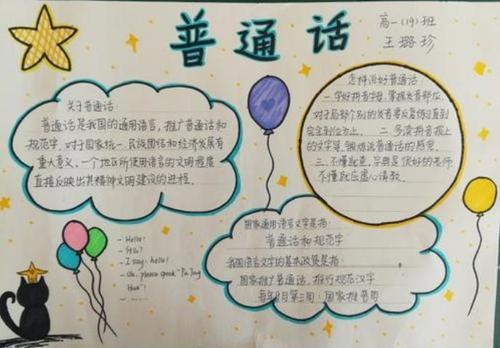 普通话
高一(19)班
王璐珍
关于普通话:
普通话是我国的通用语言,推广普通话和
规范字,对于国家统一、民族团结和经济发展有
重大意义,一个地区所使用语言的文明程度
直接反映出其精神文明建设的进程.
怎样说好普通话:
一.学好拼音字母,掌握发音部位,
对于局部个别的发音要反复练习直到
完全到位为止. 二.多读拼音报上
的文字等,锻炼说普通话的感觉.
三.不懂就查,字典是很好的老师
不懂就应虚心请教.
- Hello!
- Sir?
- I say, hello!
- Uh, please speak "Pu Tong
Hua"!
国家通用语言文字是指:
普通话和规范字
我国语言文字的基本政策是指:
国家推广普通话,推行规范汉字
每年9月第三周:国家推普周